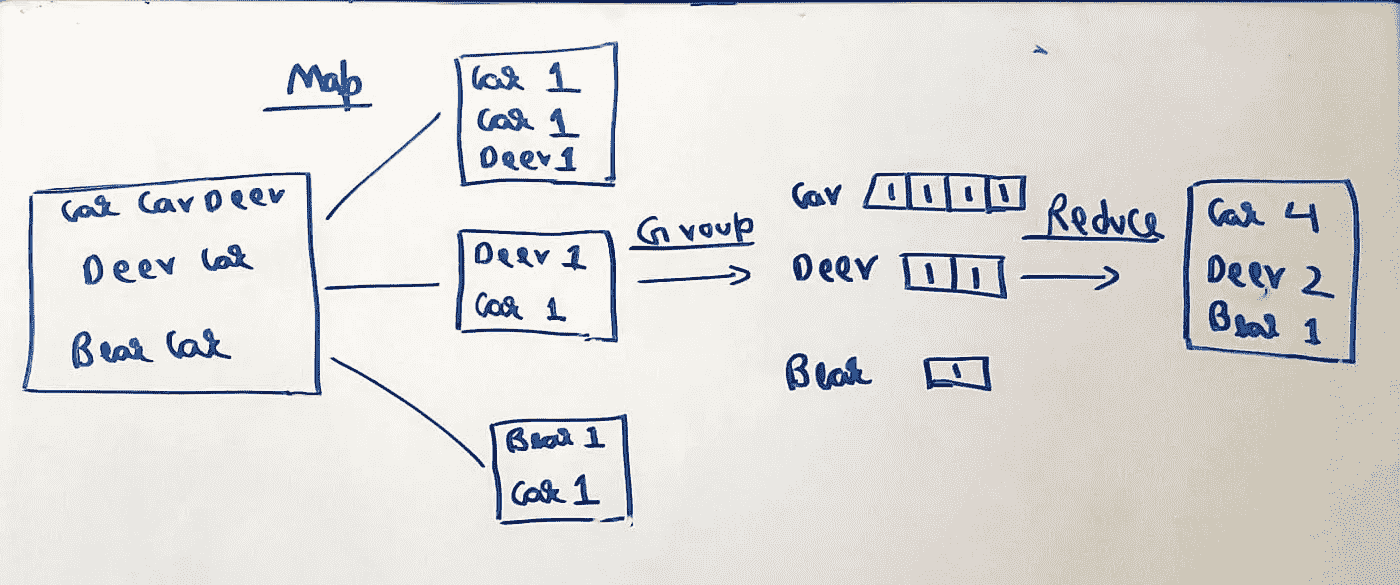 Map
Car Car Deer
Deer Car
Bear Car
Car 1
Car 1
Deer 1
Deer 1
Car 1
Bear 1
Car 1
Group
Car 1 1 1 1
Deer 1 1
Bear 1
Reduce
Car 4
Deer 2
Bear 1